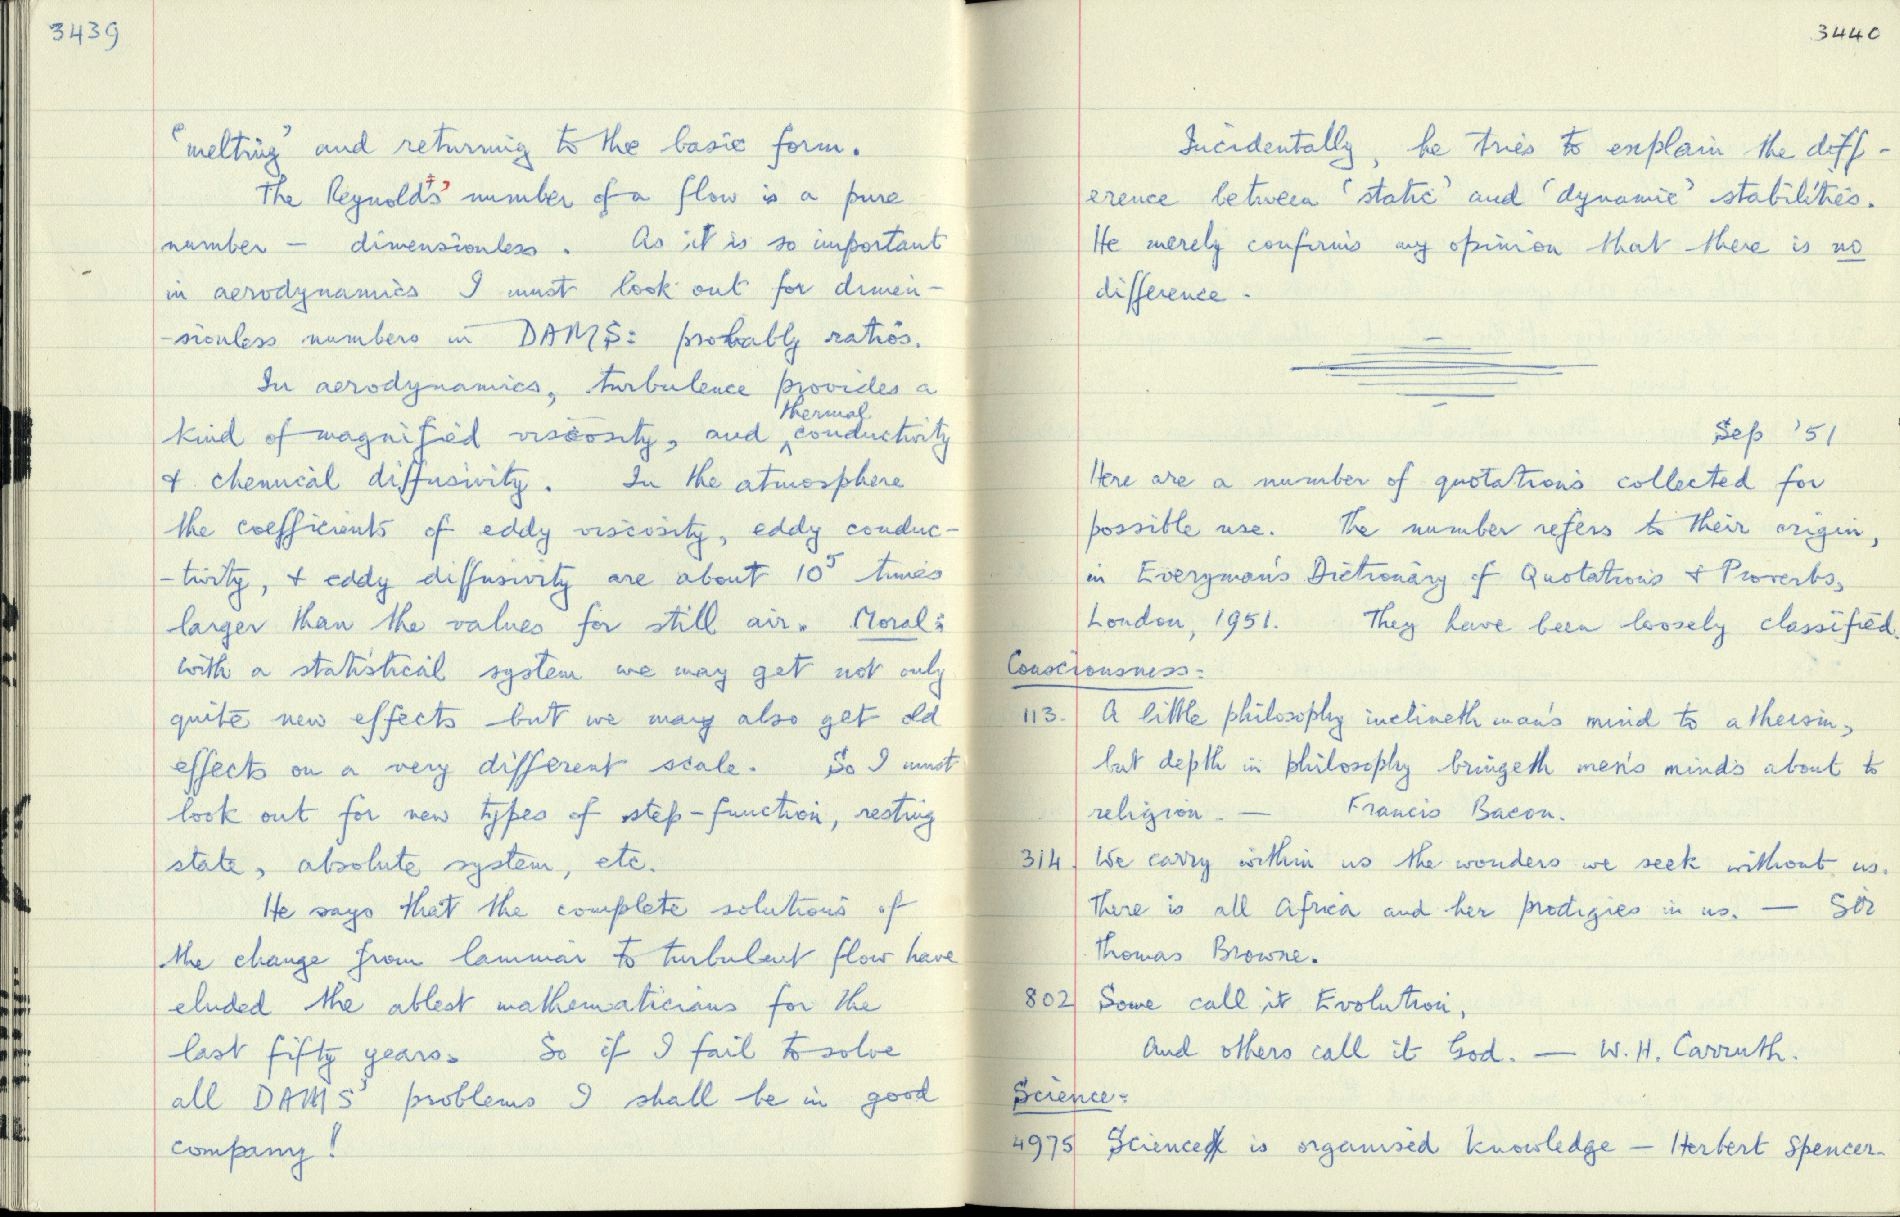 3439
'melting' and returning to the basic form.
The Reynolds' number of a flow is a pure
number — dimensionless. As it is so important
in aerodynamics I must look out for dimen-
-sionless numbers in DAMS: probably ratios.
In aerodynamics, turbulence provides a
kind of magnified viscosity, and thermal conductivity
& chemical diffusivity. In the atmosphere
the coefficients of eddy viscosity, eddy conduc-
-tivity, & eddy diffusivity are about 10⁵ times
larger than the values for still air. Moral:
with a statistical system we may get not only
quite new effects but we may also get old
effects on a very different scale. So I must
look out for new types of step-function, resting
state, absolute system, etc.
He says that the complete solutions of
the change from laminar to turbulent flow have
eluded the ablest mathematicians for the
last fifty years. So if I fail to solve
all DAMS' problems I shall be in good
company!
3440
Incidentally, he tries to explain the diff-
erence between 'static' and 'dynamic' stabilities.
He merely confirms my opinion that there is no
difference.
Sep '51
Here are a number of quotations collected for
possible use. The number refers to their origin,
in Everyman's Dictionary of Quotations & Proverbs,
London, 1951. They have been loosely classified.
Consciousness:
113. A little philosophy inclineth man's mind to atheism,
but depth in philosophy bringeth men's minds about to
religion. — Francis Bacon.
314. We carry within us the wonders we seek without us.
There is all Africa and her prodigies in us. — Sir
Thomas Browne.
802 Some call it Evolution,
And others call it God. — W. H. Carruth.
Science:
4975 Science is organised knowledge — Herbert Spencer.